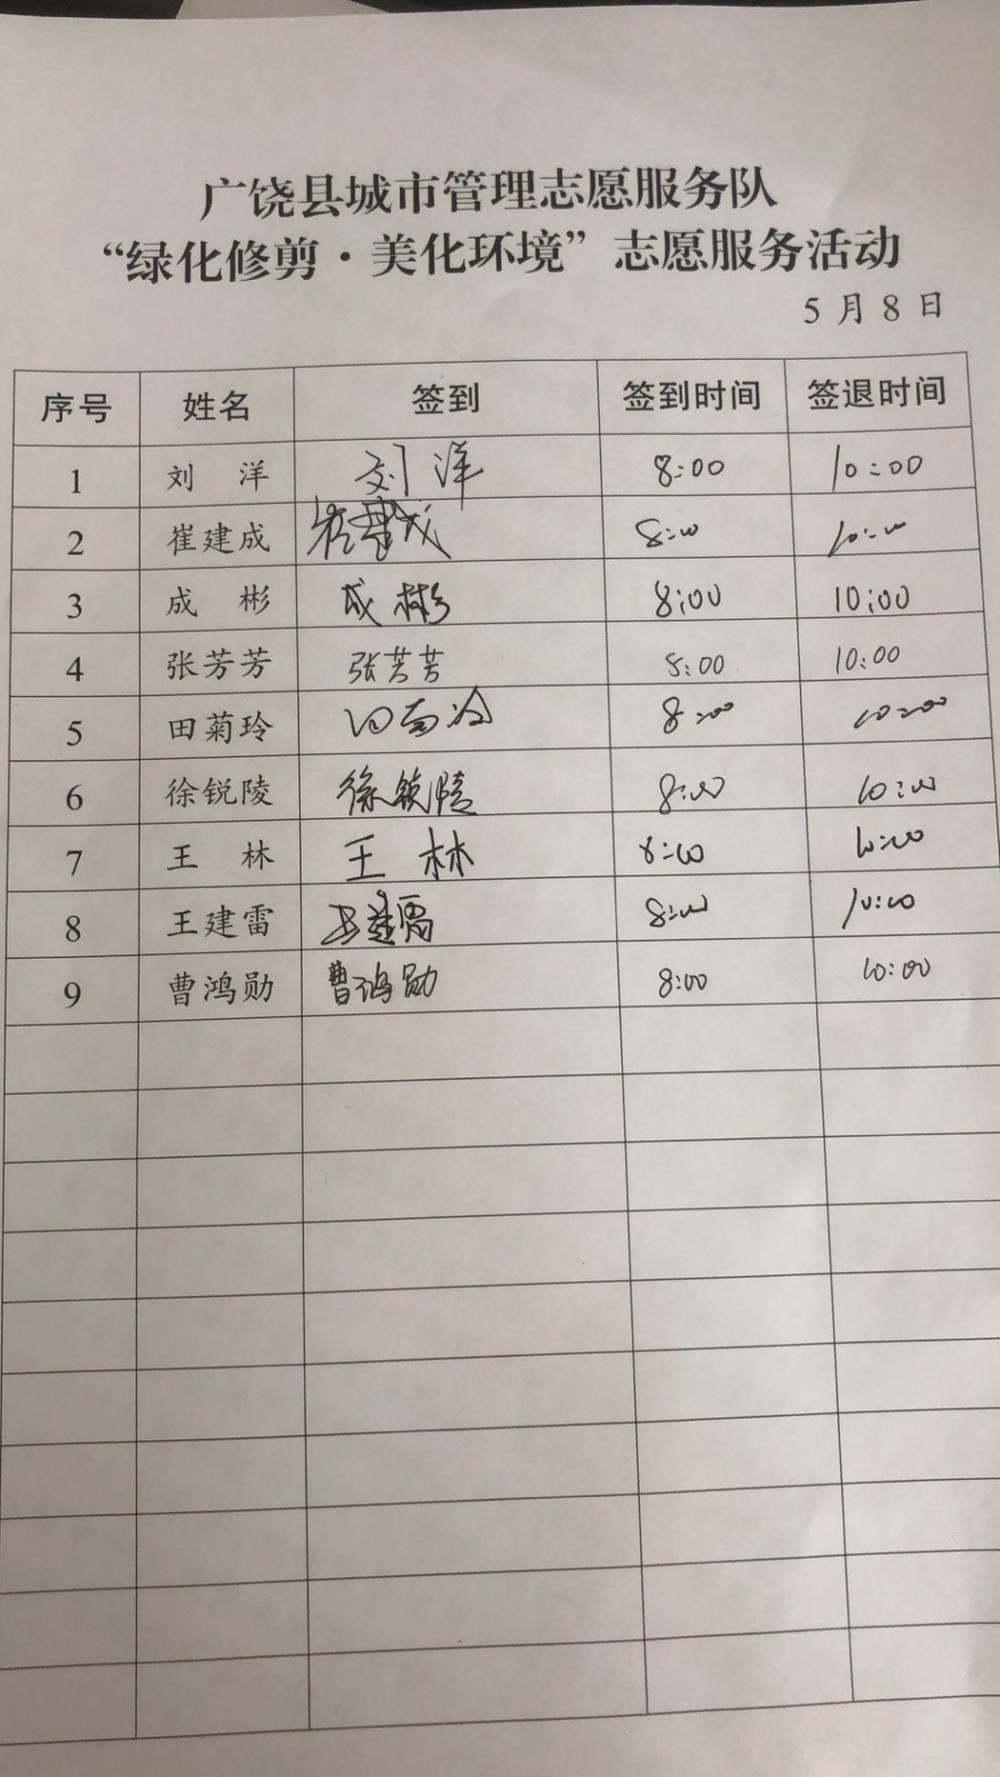 广饶县城市管理志愿服务队
“绿化修剪·美化环境”志愿服务活动
5 月 8 日
序号 姓名 签到 签到时间 签退时间
1 刘 洋 刘 洋 8:00 10:00
2 崔建成 崔建成 8:00 10:00
3 成 彬 成 彬 8:00 10:00
4 张芳芳 张芳芳 8:00 10:00
5 田菊玲 8:00 10:00
6 徐锐陵 徐锐陵 8:00 10:00
7 王 林 王 林 8:00 10:00
8 王建雷 王建雷 8:00 10:00
9 曹鸿勋 曹鸿勋 8:00 10:00